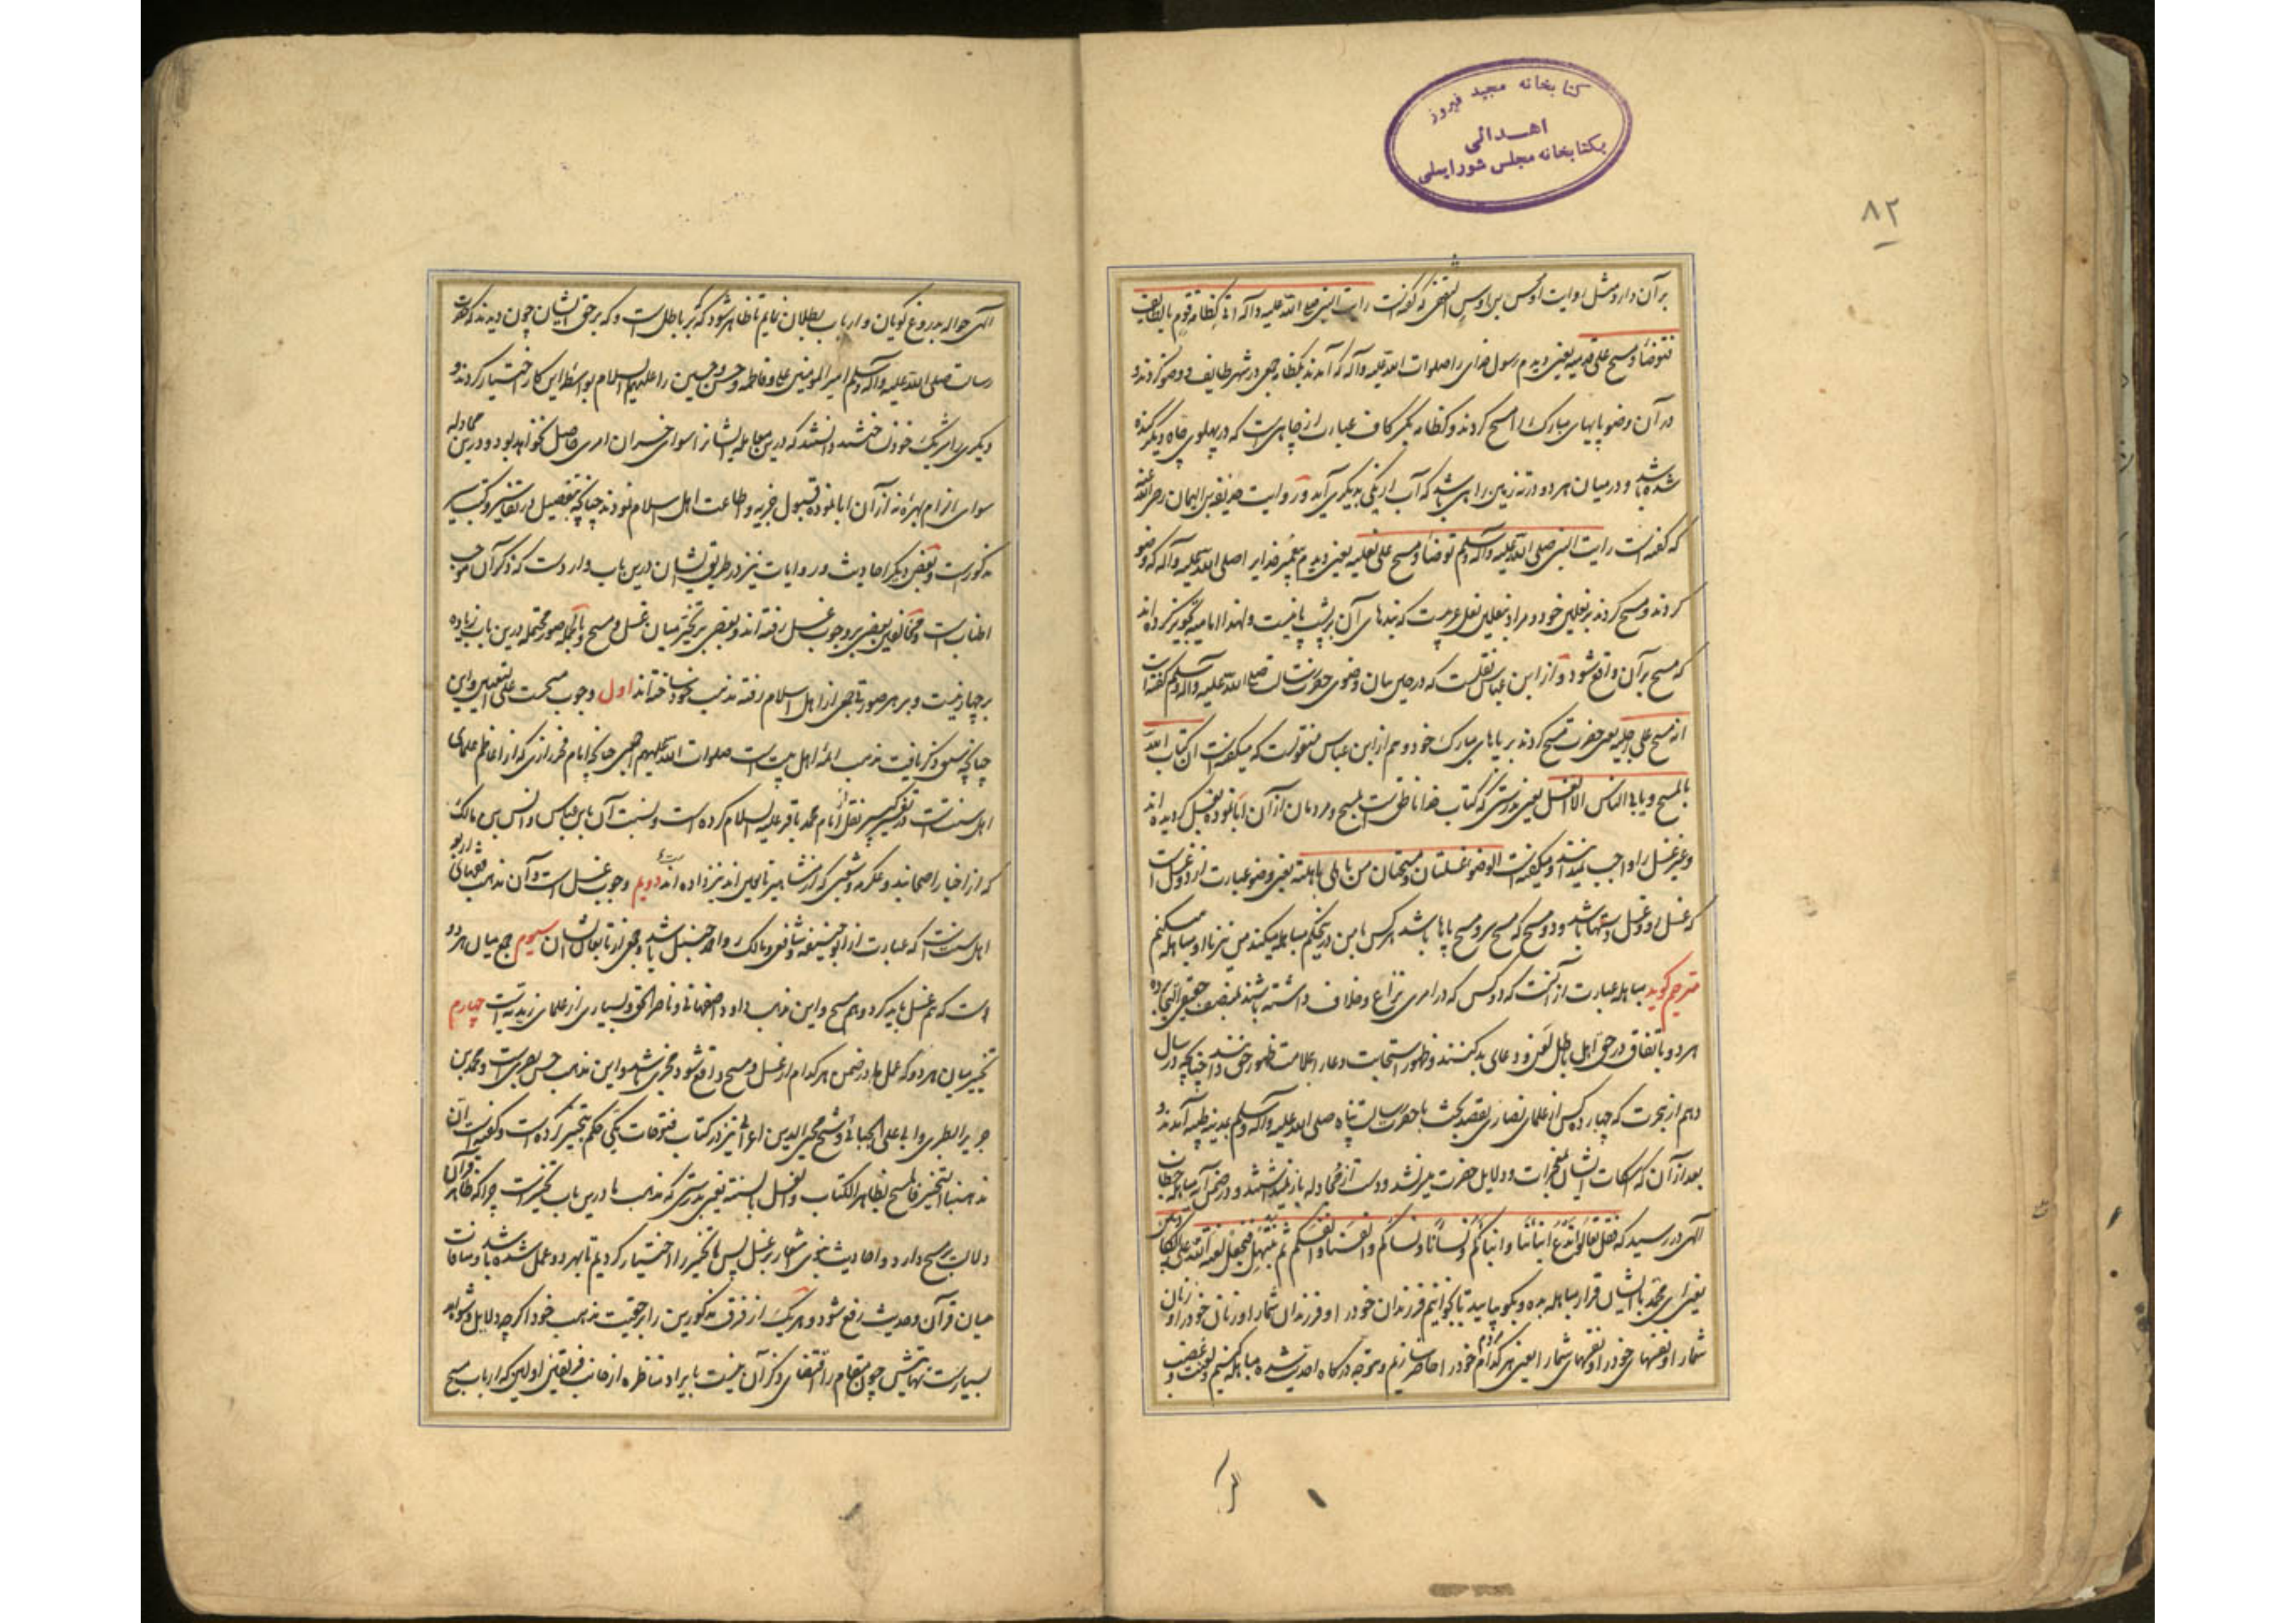 کتابخانه مجید فیروز
اهدائی
بکتابخانه مجلس شورایملی
۸۲
بر آن دارد مثل روایت اوس بن اوس الثقفی که گفت رایت النبی صلی الله علیه وآله اتی کظامة قوم بالطایف
فتوضأ و مسح علی قدمیه یعنی دیدم رسول خدای را صلوات الله علیه وآله که آمدند بکظامه جمعی در شهر طایف و وضو کردند و
در آن وضو پایهای مبارک را مسح کردند و کظامه بکسر کاف عبارت از چاهی است که در پهلوی چاه دیگر کنده
شده باشد و در میان هر دو در ته زمین راهی باشد که آب از یکی بدیگری آید و روایت حذیفة بن الیمان رضی الله عنه
که گفته است رایت النبی صلی الله علیه وآله وسلم توضأ و مسح علی نعلیه یعنی دیدم پیغمبر خدای را صلی الله علیه وآله که وضو
کردند و مسح کردند بر نعلین خود و مراد بنعلین نعل عربیست که بندهای آن بر پشت پا نیست و لهذا امامیه تجویز کرده اند
که مسح بر آن واقع شود و از ابن عباس نقلست که در حین بیان وضوی حضرت رسالت صلی الله علیه وآله وسلم گفته است
انه مسح علی رجلیه یعنی حضرت مسح کردند بر پاهای مبارک خود و هم از ابن عباس منقولست که میگفته است ان کتاب الله
بالمسح و یابی الناس الا الغسل یعنی بدرستی که کتاب خدا ناطق است بمسح و مردمان از آن ابا نموده بغسل گرویده اند
و غیر غسل را واجب نمیدانند و میگفته است الوضو غسلتان و مسحتان من باهلنی باهلته یعنی وضو عبارت از دو غسل است
که غسل رو و غسل دستها باشد و دو مسح که مسح سر و مسح پاها باشد هر کس با من در این حکم مباهله میکند من نیز با او مباهله میکنم
مترجم گوید مباهله عبارت از آنست که دو کس که در امری نزاع و خلاف داشته باشند
هر دو باتفاق در حق اهل باطل لعن و دعای بد کنند و ظهور استجابت دعا را علامت ظهور حق دانند چنانچه در سال
دهم از هجرت که چهارده کس از علمای نصاری بقصد بحث با حضرت رسالت پناه صلی الله علیه وآله وسلم بمدینه طیبه آمدند و
بعد از آن که اسکات ایشان بمعجزات و دلایل حضرت میسر نشد و دست از مجادله باز نمیداشتند و در ضمن آیه مباهله خطاب
الهی در رسید که فقل تعالوا ندع ابنائنا و ابنائکم و نسائنا و نسائکم و انفسنا و انفسکم ثم نبتهل فنجعل لعنة الله علی الکاذبین
یعنی ای محمد با ایشان قرار مباهله بده و بگو بیایید تا بخوانیم فرزندان خود را و فرزندان شما را و زنان خود را و زنان
شما را و نفسهای خود را و نفسهای شما را یعنی هر کدام مردم خود را حاضر سازیم و متوجه درگاه احدیت شده مباهله کنیم و لعنت و غضب
الهی حواله بدروغ گویان و ارباب بطلان نمایم تا ظاهر شود که که بر باطل است و که بر حق ایشان چون دیدند که حضرت
رسالت صلی الله علیه وآله وسلم امیر المومنین علی و فاطمه و حسن و حسین را علیهم السلام بواسطه این کار اختیار کردند و
دیگری را شریک خود نساختند دانستند که در این مباهله ایشان را سوای خسران امری حاصل نخواهد بود و درین مجادله
سوای الزام بهره نه از آن ابا نموده قبول جزیه و اطاعت اهل اسلام نمودند چنانچه بتفصیل در تفاسیر و کتب سیر
مذکورست و بعضی دیگر احادیث و روایات نیز در طریق ایشان درین باب وارد است که ذکر آن موجب
اطنابست و مخالفین بعضی بر وجوب غسل رفته اند و بعضی بر تخییر میان غسل و مسح و بالجمله صور محتمله درین باب زیاده
بر چهار نیست و بر هر صورتی جمعی از اهل اسلام رفته مذهب خود ساخته اند اول وجوب مسحست علی التعیین و این
چنانچه سبق ذکر یافت مذهب ائمه اهل بیت است صلوات الله علیهم اجمعین چنانچه امام فخر رازی که از اعاظم علمای
اهل سنت است در تفسیر کبیر نقل از امام محمد باقر علیه السلام کرده است و نسبت آن بابن عباس و انس بن مالک
که از اخیار اصحابند و عکرمه و شعبی که از مشاهیر تابعین اند نیز داده اند دویم وجوب غسل است و آن مذهب فقهای اربعه
اهل سنت است که عبارت از ابوحنیفه و شافعی و مالک و احمد حنبل باشد و جمعی از تابعان ایشان سیوم جمع میان هر دو
است که هم غسل باید کرد و هم مسح و این مذهب داود اصفهانی و ناصر الحق و بسیاری از علمای زیدیه است چهارم
تخییر میان هر دو که عمل بهر در ضمن هر کدام از غسل و مسح واقع شود مجزی باشد و این مذهب حسن بصریست و محمد بن
جریر الطبری و ابی علی الجبائی و شیخ محیی الدین اعرابی نیز در کتاب فتوحات مکی حکم بتخییر کرده است و گفته است ان
مذهبنا التخییر فالمسح بظاهر الکتاب و الغسل بالسنة یعنی بدرستی که مذهب ما درین باب تخییرست چرا که ظاهر قرآن
دلالت بر مسح دارد و احادیث نبوی مشعار بر غسل پس ما تخییر را اختیار کردیم تا بهر دو عمل شده باشد و منافات
میان قرآن و حدیث رفع شود و هر یک از فرق مذکورین را بر حقیت مذهب خود اگر چه دلایل و شواهد
بسیارست نهایتش چون مقام را اقتضای ذکر آن نیست بایراد مناظره از جانب فریقین اولین که ارباب مسح